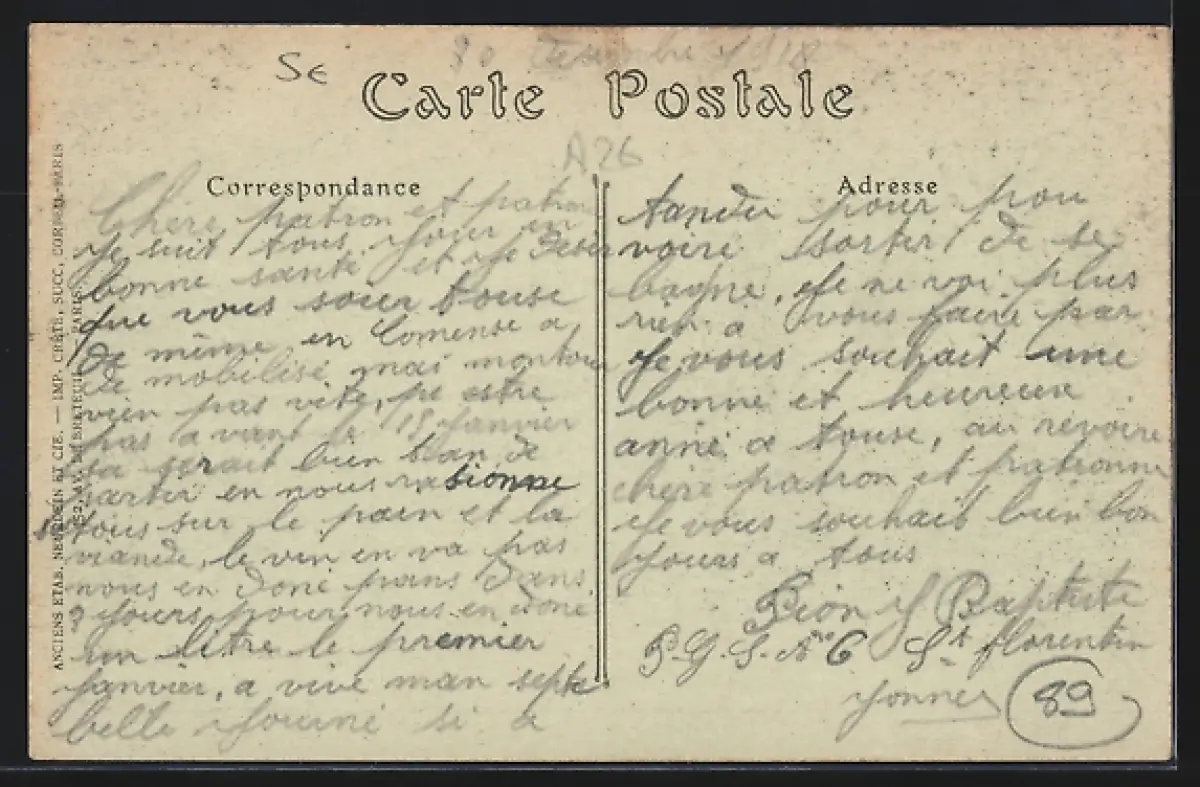 Se
30 Desembre 1918
Carte Postale
A26
Correspondance
Chere patron et patron
Je suit tous Jour en
bonne santé et Je deser
que vous soier touse
de même, en Comense a
de mobilisé mai montour
vien pas vite, pe estre
pas avant le 15 Janvier
sa serait bien tan de
sartir en nous rasionne
tous sur le pain et la
viande, le vin en va pas
nous en done pans dans
Jours pour nous en done
un litre le premier
Janvier, a vive man sept
belle Journé si a
Adresse
tandu pour pou
voire sortir de se
bagne, Je ne voi plus
rien a vous faire par
Je vous souhait une
bonne et heureuse
anné a touse, au revoire
chere patron et patronne
Je vous souhait bien bon
Jours a tous
Pion J Baptiste
P.G.S. N° 6 St florentin
Yonne
89
ANCIENS ETAB. NEURDEIN ET CIE. — IMP. CRÉTÉ, SUCC. CORBEIL-PARIS
52, AV. DE BRETEUIL, PARIS